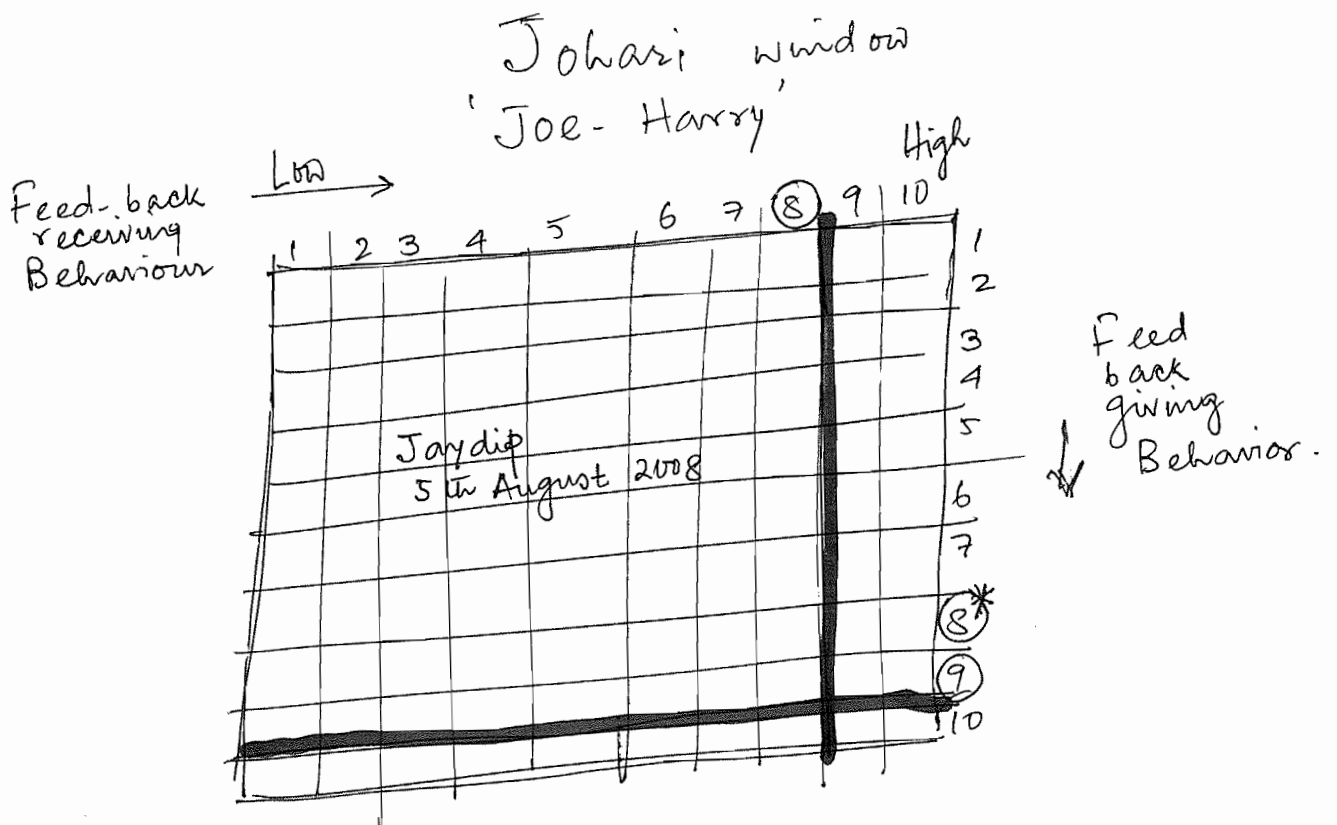 Johari window
'Joe-Harry'
High
Low
Feed-back
receiving
Behaviour
1 2 3 4 5 6 7 8 9 10
1
2
3
4
5
6
7
8*
9
10
Feed
back
giving
Behavior.
Jaydip
5th August 2008